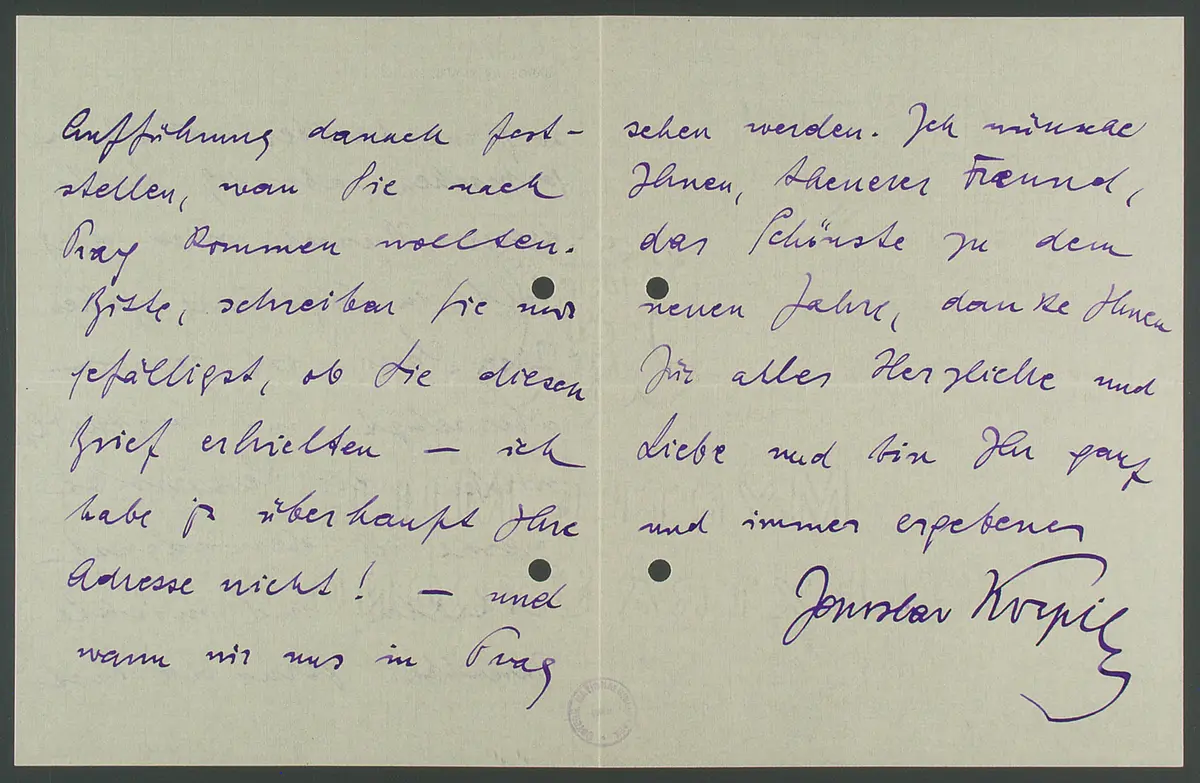 Aufführung danach fest-
stellen, wan Sie nach
Prag kommen wollten.
Bitte, schreiben Sie mir
gefälligst, ob Sie diesen
Brief erhielten — ich
habe ja überhaupt Ihre
Adresse nicht! — und
wann wir uns in Prag
sehen werden. Ich wünsche
Ihnen, theuerer Freund,
das Schönste zu dem
neuen Jahre, danke Ihnen
für alles Herzliche und
Liebe und bin Ihr ganz
und immer ergebener
Jaroslav Kvapil